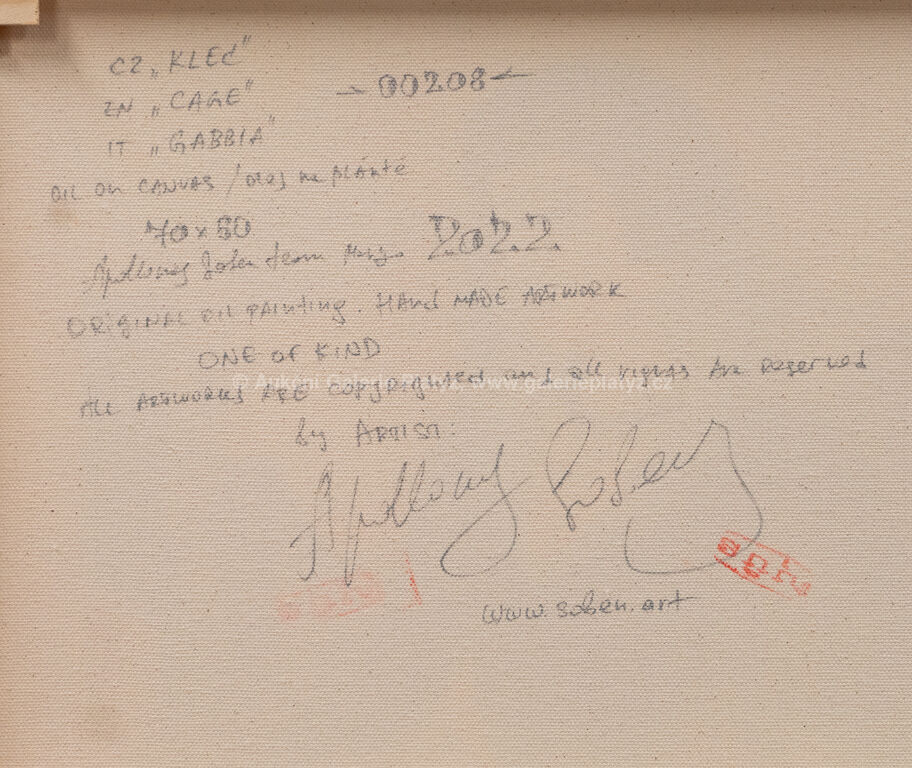 CZ „KLEC"
→ 00208 ←
EN „CAGE"
IT „GABBIA"
OIL ON CANVAS / olej na plátně
70 x 50
Apollonas Soben 2022.
ORIGINAL OIL PAINTING. HAND MADE ARTWORK
ONE OF KIND
© Aukční Galerie Platýz www.galerieplatyz.cz
ALL ARTWORKS ARE COPYRIGHTED and all rights are reserved
by ARTIST:
Apollonas Soben
www.soben.art